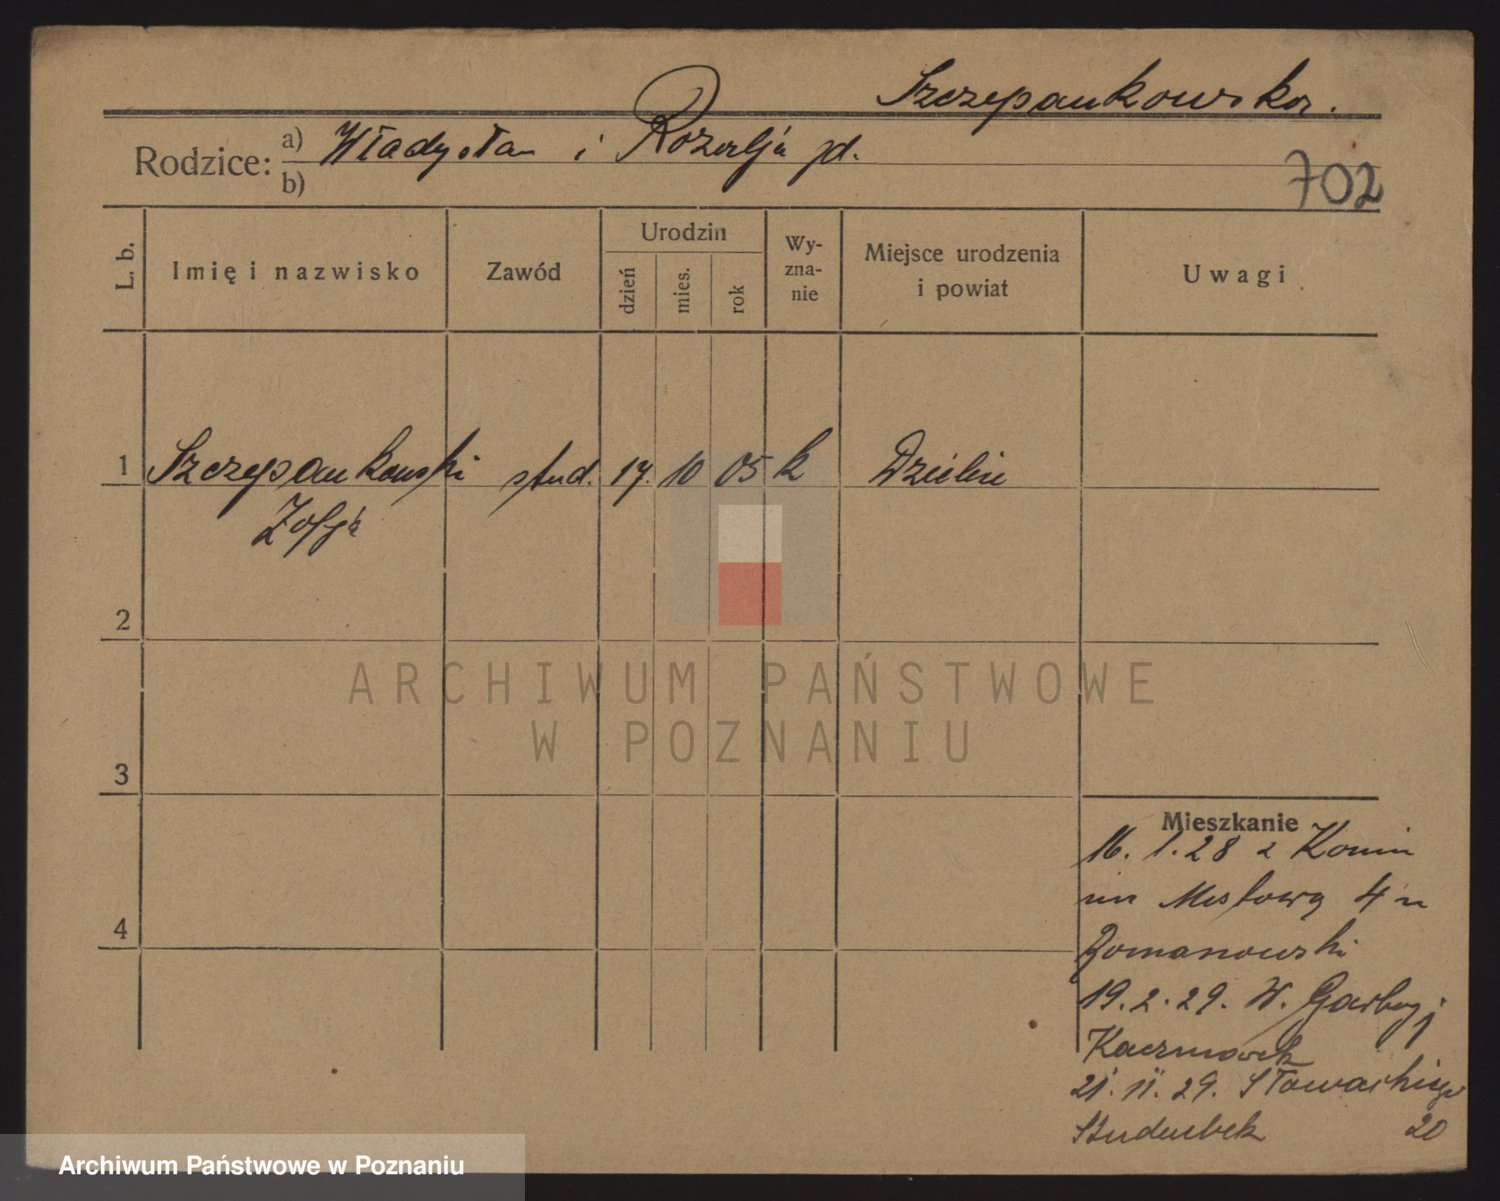 Szczepankowska.
Rodzice: a) Władysław i Rozalja pd.
b)
702
L. b.
Imię i nazwisko
Zawód
Urodzin
dzień
mies.
rok
Wy-
zna-
nie
Miejsce urodzenia
i powiat
Uwagi
1 Szczepankowski stud. 17. 10 05 k Dzielin
Zofja
2
3
4
ARCHIWUM PAŃSTWOWE
W POZNANIU
Mieszkanie
16. 1. 28 z Konin
4
Romanowski
19. 2. 29. W. Garbary
Kaczmarek
21. 11. 29. Słowackiego
20
Archiwum Państwowe w Poznaniu